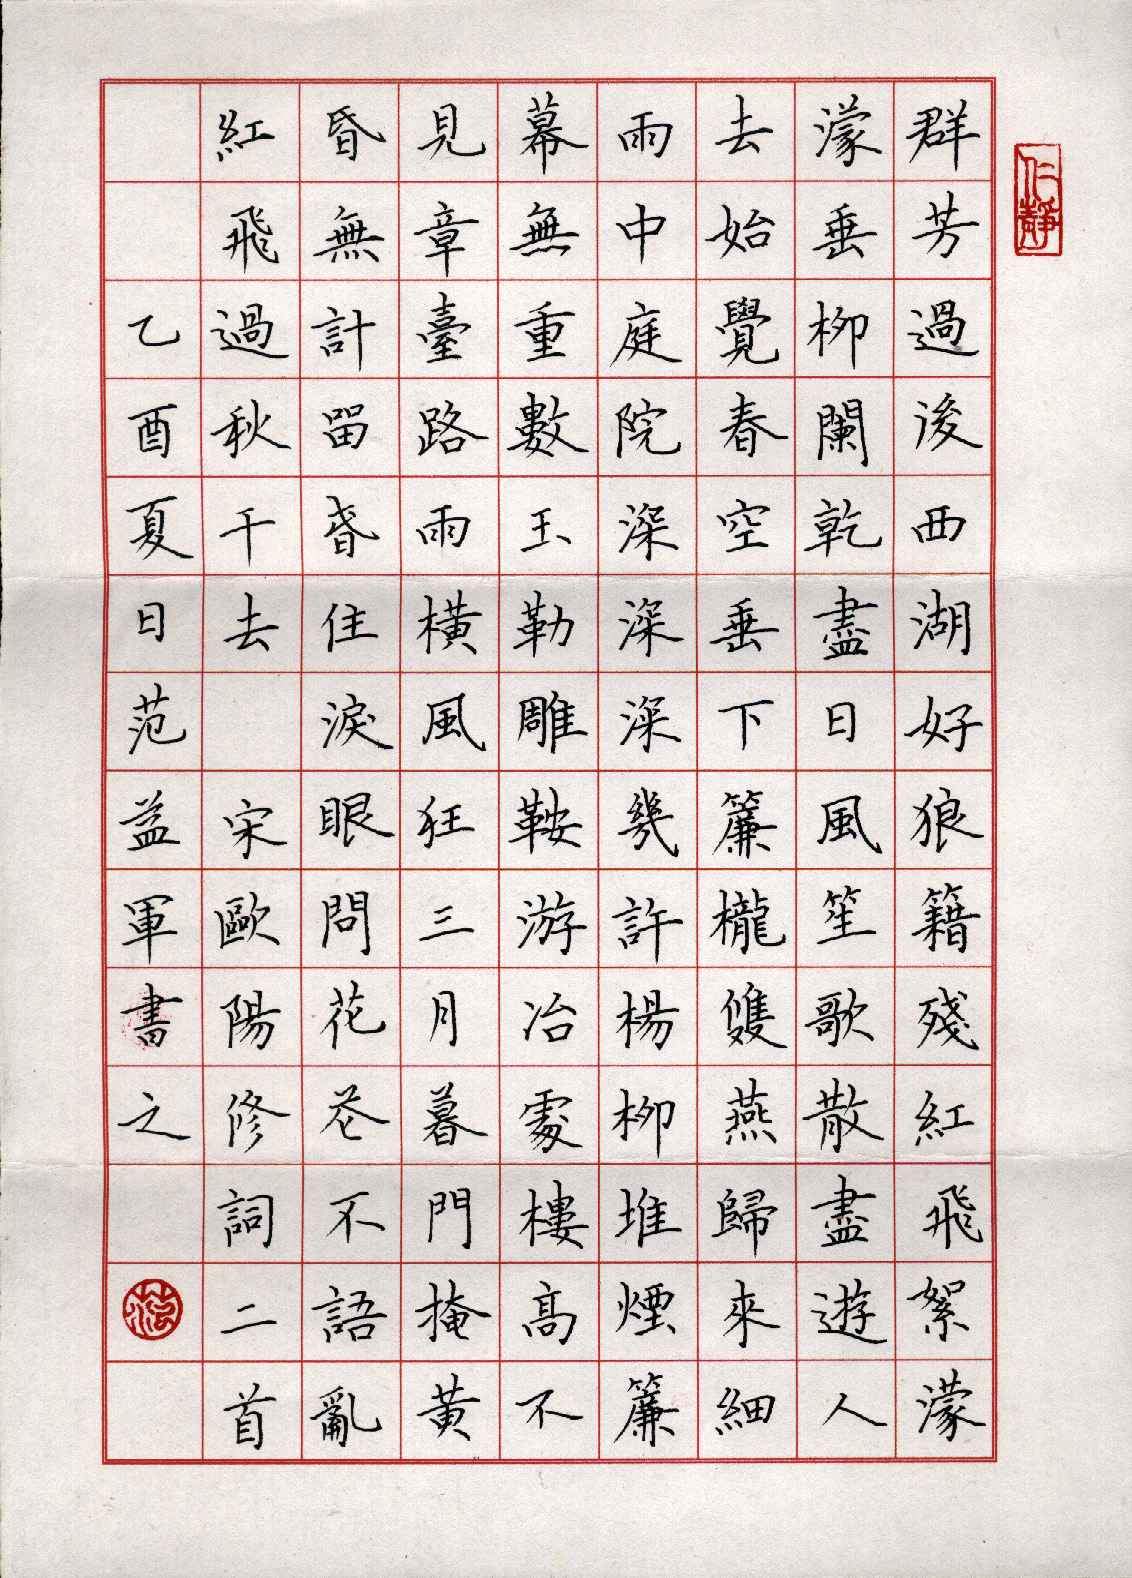 仁靜
群芳過後西湖好狼籍殘紅飛絮濛
濛垂柳闌乾盡日風笙歌散盡遊人
去始覺春空垂下簾櫳雙燕歸來細
雨中庭院深深深幾許楊柳堆煙簾
幕無重數玉勒雕鞍游冶處樓高不
見章臺路雨橫風狂三月暮門掩黃
昏無計留春住淚眼問花花不語亂
紅飛過秋千去 宋歐陽修詞二首
乙酉夏日范益軍書之